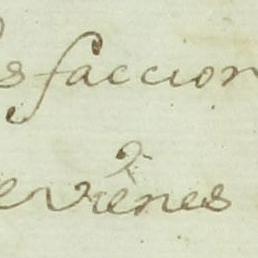 sfaccion
evienes